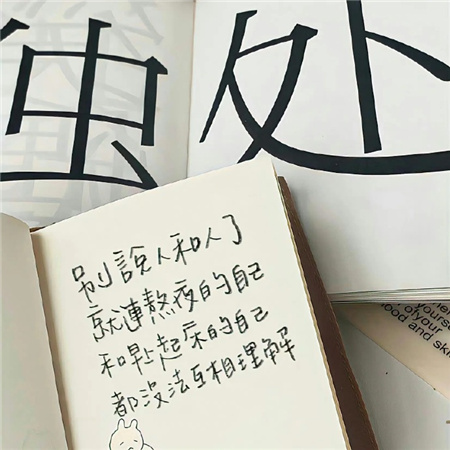 独处
別說人和人了
就連熬夜的自己
和早上起床的自己
都沒法互相理解
of your
and